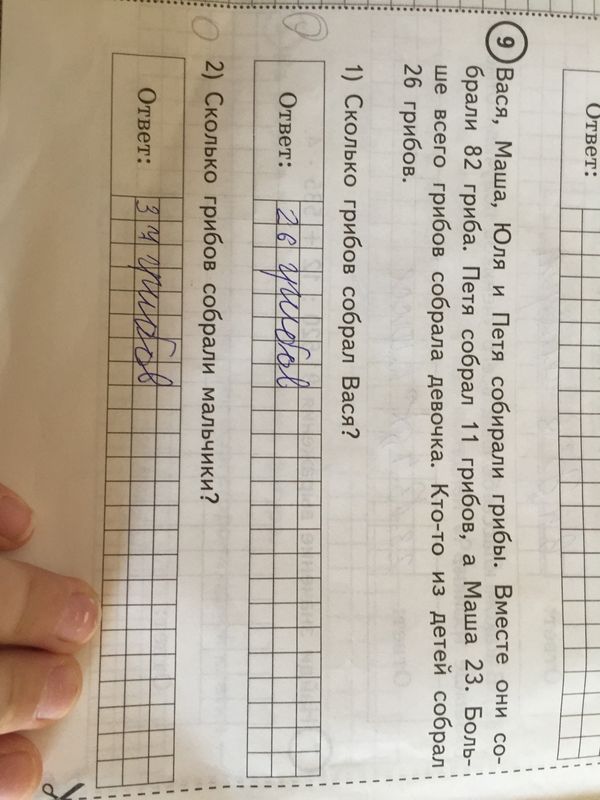 Ответ:
9 Вася, Маша, Юля и Петя собирали грибы. Вместе они со-
брали 82 гриба. Петя собрал 11 грибов, а Маша 23. Боль-
ше всего грибов собрала девочка. Кто-то из детей собрал
26 грибов.
1) Сколько грибов собрал Вася?
Ответ: 26 грибов
2) Сколько грибов собрали мальчики?
Ответ: 34 грибов